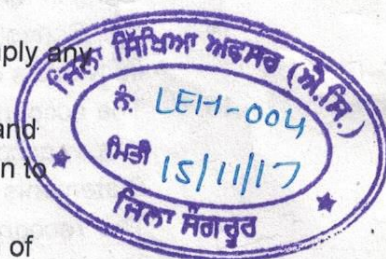 ply any
and
n to
of
ਜਿਲਾ ਸਿੱਖਿਆ ਅਫਸਰ (ਐ.ਸਿ.)
ਨੰ: LEH-004
ਮਿਤੀ 15/11/17
ਜਿਲਾ ਸੰਗਰੂਰ